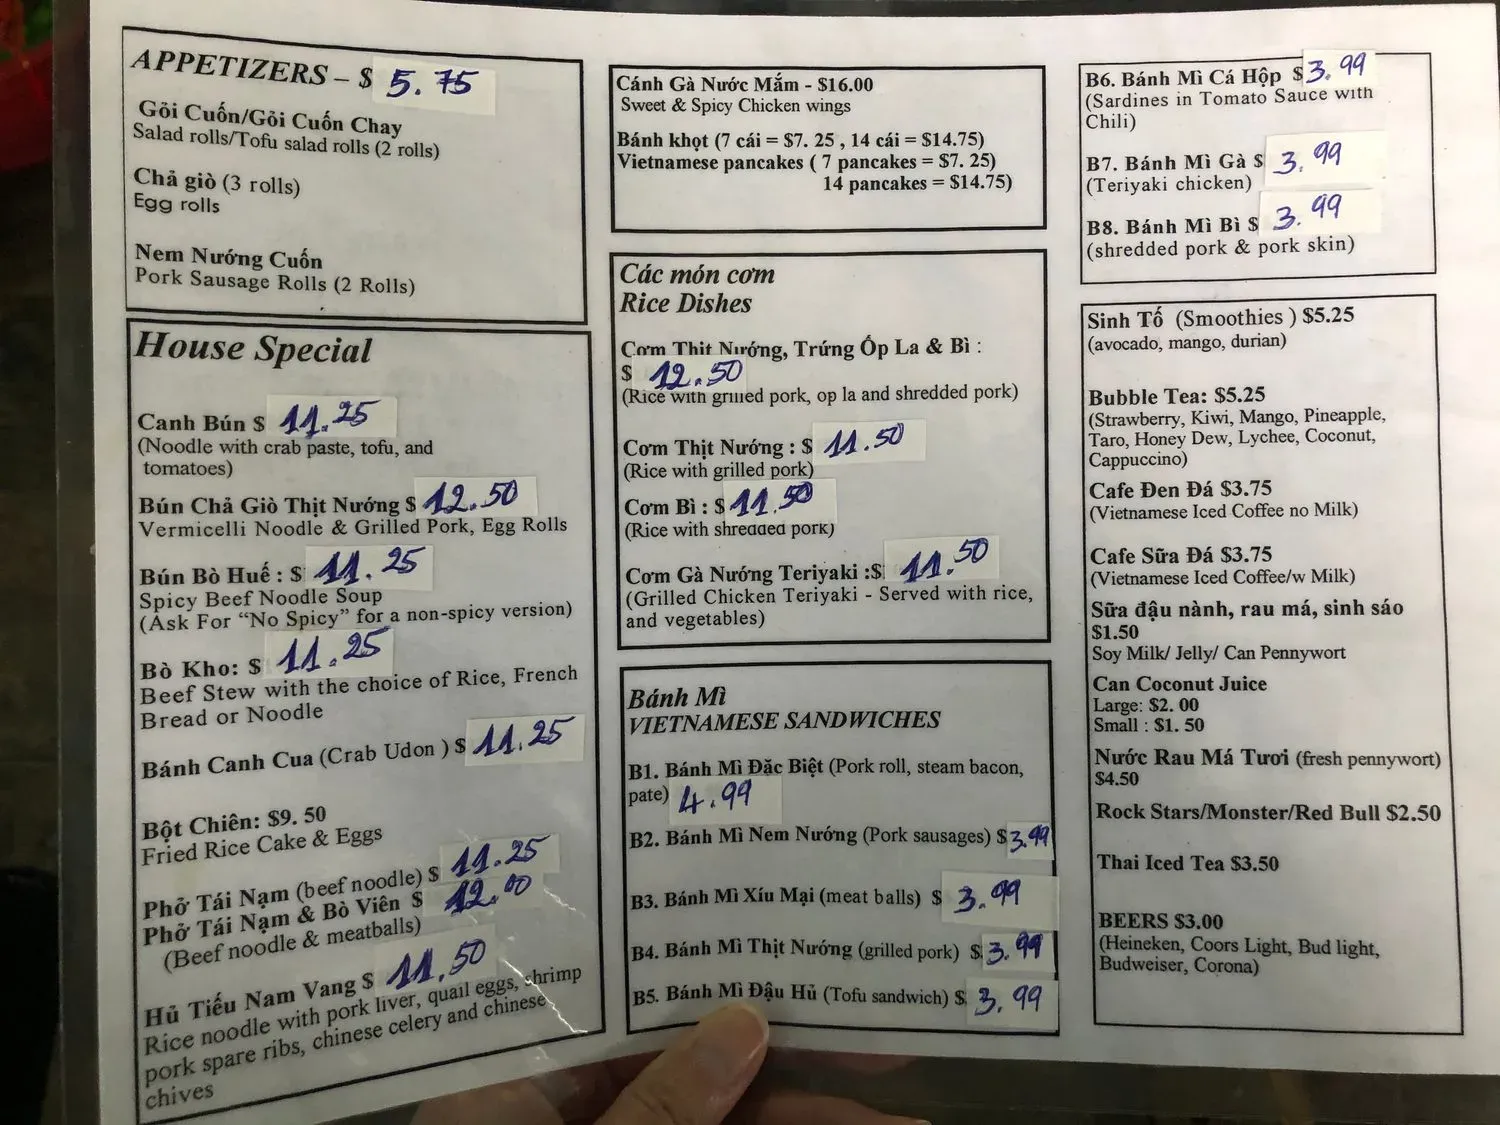 APPETIZERS – $ 5.75
Gỏi Cuốn/Gỏi Cuốn Chay
Salad rolls/Tofu salad rolls (2 rolls)
Chả giò (3 rolls)
Egg rolls
Nem Nướng Cuốn
Pork Sausage Rolls (2 Rolls)
House Special
Canh Bún $ 11.25
(Noodle with crab paste, tofu, and
tomatoes)
Bún Chả Giò Thịt Nướng $ 12.50
Vermicelli Noodle & Grilled Pork, Egg Rolls
Bún Bò Huế : $ 11.25
Spicy Beef Noodle Soup
(Ask For “No Spicy” for a non-spicy version)
Bò Kho: $ 11.25
Beef Stew with the choice of Rice, French
Bread or Noodle
Bánh Canh Cua (Crab Udon ) $ 11.25
Bột Chiên: $9. 50
Fried Rice Cake & Eggs
Phở Tái Nạm (beef noodle) $ 11.25
Phở Tái Nạm & Bò Viên $ 12.00
(Beef noodle & meatballs)
Hủ Tiếu Nam Vang $ 11.50
Rice noodle with pork liver, quail eggs, shrimp
pork spare ribs, chinese celery and chinese
chives
Cánh Gà Nước Mắm - $16.00
Sweet & Spicy Chicken wings
Bánh khọt (7 cái = $7. 25 , 14 cái = $14.75)
Vietnamese pancakes ( 7 pancakes = $7. 25)
14 pancakes = $14.75)
Các món cơm
Rice Dishes
Cơm Thịt Nướng, Trứng Ốp La & Bì :
$ 12.50
(Rice with grilled pork, op la and shredded pork)
Cơm Thịt Nướng : $ 11.50
(Rice with grilled pork)
Cơm Bì : $ 11.50
(Rice with shredded pork)
Cơm Gà Nướng Teriyaki :$ 11.50
(Grilled Chicken Teriyaki - Served with rice,
and vegetables)
Bánh Mì
VIETNAMESE SANDWICHES
B1. Bánh Mì Đặc Biệt (Pork roll, steam bacon,
pate) 4.99
B2. Bánh Mì Nem Nướng (Pork sausages) $ 3.99
B3. Bánh Mì Xíu Mại (meat balls) $ 3.99
B4. Bánh Mì Thịt Nướng (grilled pork) $ 3.99
B5. Bánh Mì Đậu Hủ (Tofu sandwich) $ 3.99
B6. Bánh Mì Cá Hộp $ 3.99
(Sardines in Tomato Sauce with
Chili)
B7. Bánh Mì Gà $ 3.99
(Teriyaki chicken)
B8. Bánh Mì Bì $ 3.99
(shredded pork & pork skin)
Sinh Tố (Smoothies ) $5.25
(avocado, mango, durian)
Bubble Tea: $5.25
(Strawberry, Kiwi, Mango, Pineapple,
Taro, Honey Dew, Lychee, Coconut,
Cappuccino)
Cafe Đen Đá $3.75
(Vietnamese Iced Coffee no Milk)
Cafe Sữa Đá $3.75
(Vietnamese Iced Coffee/w Milk)
Sữa đậu nành, rau má, sinh sáo
$1.50
Soy Milk/ Jelly/ Can Pennywort
Can Coconut Juice
Large: $2. 00
Small : $1. 50
Nước Rau Má Tươi (fresh pennywort)
$4.50
Rock Stars/Monster/Red Bull $2.50
Thai Iced Tea $3.50
BEERS $3.00
(Heineken, Coors Light, Bud light,
Budweiser, Corona)